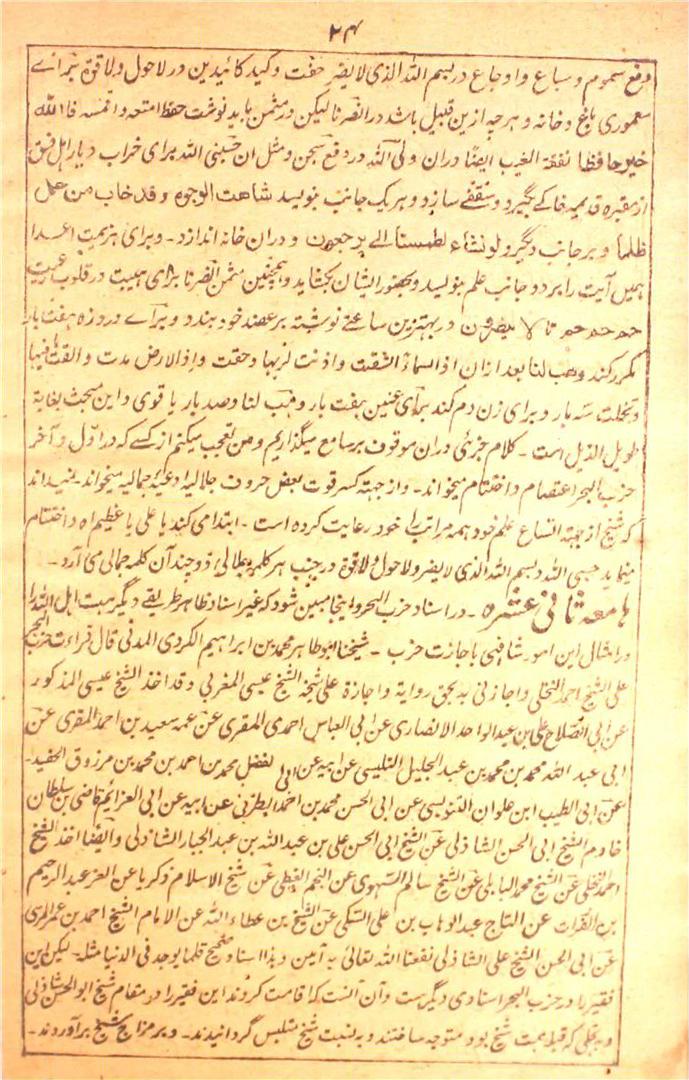 ۲۴
ورفع سموم و سباع و اوجاع در بسم اللّٰه الذی لا یضر حفت و کید کائیدین در لاحول ولا قوة نیز برائے
معموری باغ و خانه و هر چه ازین قبیل باشد در انصرنا لیکن در مثمن باید نوشت حفظ امتعه و اقمسه فاللّٰه
خیر حافظا نفقة الغیب ایضًا دران ولی اللّٰه در دفع سجن و مثل ان حسبنی اللّٰه برای خراب دیار اهل فسق
از مقبره قدیمیه خاکے گیرد و سقفے سازد و هر یک جانب بنویسد شاهت الوجوه و قد خاب من حمل
ظلما و بر جانب دیگر ولو نشاء لطمسنا الے یرجعون و دران خانه اندازد۔ و برای هزیمت اعدا
همین آیت را بر دو جانب علم بنویسد و بحضور ایشان بکشاید و همچنین مثمن انصرنا برای هیبت در قلوب رعیت
حم حم حم تا لا ینصرون در بهترین ساعتے نوشته بر عضد خود بندد و برائے درد زه هفت بار
مکرر کند وهب لنا بعد ازان اذا السماء انشقت واذنت لربها وحقت واذا الارض مدت والقت ما فیها
وتخلت سه بار و برای زن دم کند برای عنین هفت بار وهب لنا و صد بار یا قوی و این مبحث بغایة
طویل الذیل است۔ کلام جزئی دران موقوف بر سامع میگذاریم و من تعجب میکنم از کسے که در اوّل و آخر
حزب البحر اعتصام و اختتام میخواند۔ و از جهته کسر قوت بعض حروف جلالیه ادعیهٔ جمالیه میخواند۔ نمیداند
که شیخ از جهته اتساع علم خود همه مراتب را خود رعایت کرده است۔ ابتدا می کند یا علی یا عظیم اه و اختتام
مینماید حسبی اللّٰه و بسم اللّٰه الذی لا یضر ولا حول ولا قوة در جنب هر کلمه جلالی دو چند آن کلمه جمالی می آرد۔
هامعه ثانی عشره۔ در اسناد حزب البحر و اینجا مبین شود که غیر اسناد ظاهر طریقے دیگر هست اهل اللّٰه را
در امثال این امور شافهنی باجازت حزب۔ شیخنا ابو طاهر محمد بن ابراهیم الکردی المدنی قال قراءت حزب البحر
علی الشیخ احمد النخلی واجازنی به بحق روایة واجازة علی شیخه الشیخ عیسی المغربی وقد اخذ الشیخ عیسی المذکور
عن ابی الصلاح علی بن عبد الواحد الانصاری عن ابی العباس احمدی المقری عن عمه سعید بن احمد المقری عن
ابی عبد اللّٰه محمد بن محمد بن عبد الجلیل التلیسی عن ابیه عن ابی الفضل محمد بن احمد بن محمد بن مرزوق الحفید۔
عن ابی الطیب ابن علوان التنویسی عن ابی الحسن محمد بن احمد البطرنی عن ابیه عن ابی العزایم قاضی بن سلطان
خادم الشیخ ابی الحسن الشاذلی عن الشیخ ابی الحسن علی بن عبد اللّٰه بن عبد الجبار الشاذلی وایضا اخذ الشیخ
احمد النخلی عن الشیخ محمد البابلی عن الشیخ سالم السنهوری عن النجم الغیطی عن شیخ الاسلام زکریا عن العز عبد الرحیم
بن الفرات عن التاج عبد الوهاب بن علی السبکی عن الشیخ بن عطاء اللّٰه عن الامام الشیخ احمد بن عمر المرسی
عن ابی الحسن الشیخ علی الشاذلی نفعنا اللّٰه تعالیٰ به آمین وهذا اسناد صحیح قلما یوجد فی الدنیا مثله۔ لیکن این
فقیر را در حزب البحر اسنادی دیگر ست و آن آنست که اقامت کردند این فقیر را در مقام شیخ ابو الحسن شاذلی
و بجائی که قبله همت شیخ بود متوجه ساختند و به نسبت شیخ متلبس گردانیدند۔ و بر مزاج شیخ برآوردند۔